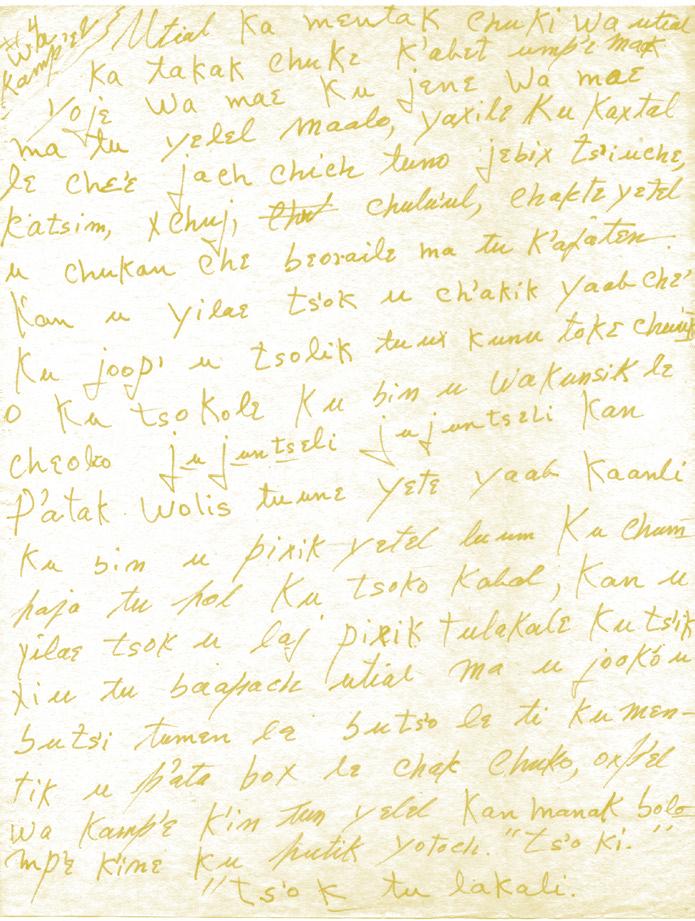 #4 Wa Kamp'el
Utial Ka mentak chuki wa utial
Ka takak chuke K'abet ump'e mak
yoje wa mae Ku jene wa mae
ma tu yelel maalo, yaxile Ku Kaxtal
le che'e jach chich tuno jebix ts'iuche,
Katsim, xchuj, chulu'ul, chakte yetel
u chukan che beoraile ma tu K'ajaten.
Kan u yilae ts'ok u ch'akik yaab che'
Ku joop'i u tsolik tuux Kunu toke chuuj
o Ku tsokole Ku bin u Wakunsik le
cheobo jujuntseli jujuntseli Kan
P'atak wolis tuune yete yaab Kaanli
Ku bin u pixik yetel luum Ku chum
paja tu pol Ku tsoko Kabal, Kan u
yilae tsok u laj pixik tulakale Ku ts'ik
xiu tu baapach utial ma u jook'o u
buts'i tumen le buts'o le ti Ku men-
tik u p'ata box le chak chuko, oxp'el
wa Kamp'e K'in tun yelel Kan manak bolo-
mp'e K'ine Ku putik yotoch. "ts'o Ki."
"ts'o K tu lakali.